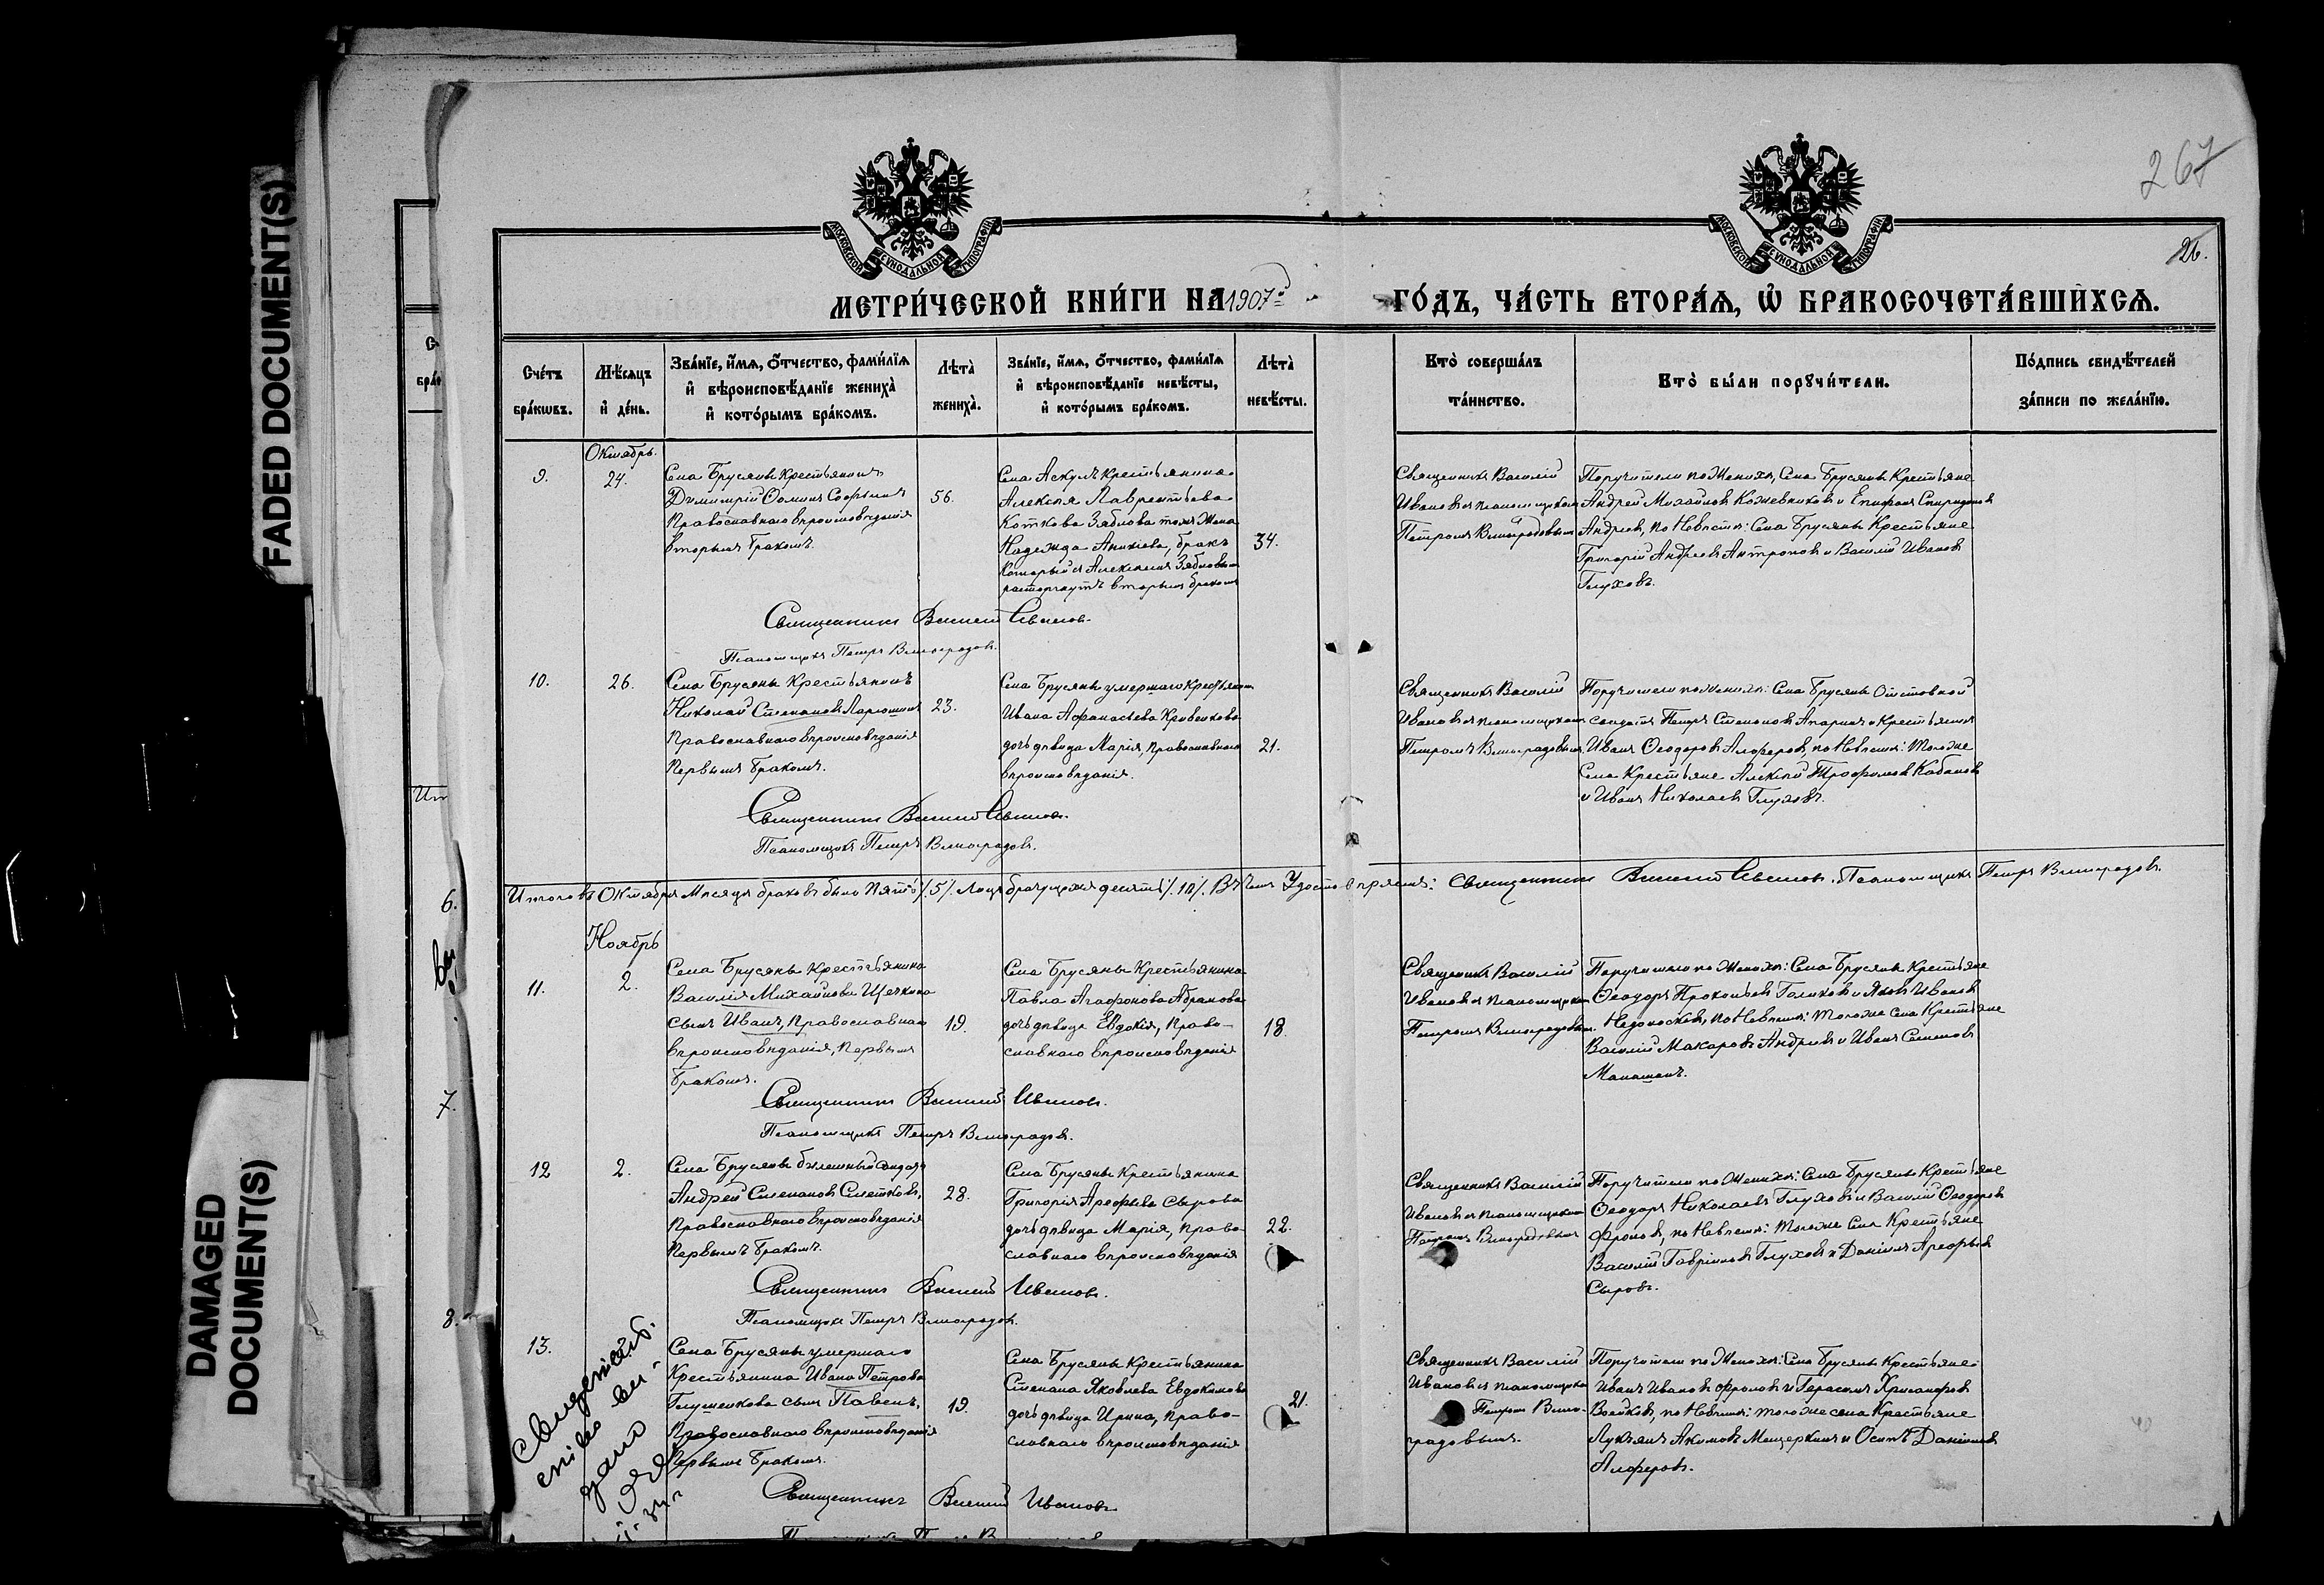 FADED DOCUMENT(S)
DAMAGED
DOCUMENT(S)
267
26.
МОСКОВСКОЙ СѴНОДАЛЬНОЙ ТИПОГРАФІИ
МОСКОВСКОЙ СѴНОДАЛЬНОЙ ТИПОГРАФІИ
МЕТРИ́ЧЕСКОЙ КНИ́ГИ НА 1907й ГО́ДЪ, ЧА́СТЬ ВТОРА́Ѧ, Ѡ҆ БРАКОСОЧЕТА́ВШИХСѦ.
Сче́тъ
бра́кѡвъ.
Мѣ́сяцъ
и҆ де́нь.
Зва́нїе, и҆́мѧ, ѻ҆́тчество, фами́лїѧ
и҆ вѣроисповѣ́данїе жениха̀
и҆ кото́рымъ бра́комъ.
Лѣта̀
жениха̀.
Зва́нїе, и҆́мѧ, ѻ҆́тчество, фами́лїѧ
и҆ вѣроисповѣ́данїе невѣ́сты,
и҆ кото́рымъ бра́комъ.
Лѣта̀
невѣ́сты.
Кто̀ соверша́лъ
та́инство.
Кто̀ бы́ли порꙋчи́тели.
По́дпись свидѣ́телей
за́писи по жела́нїю.
Октябрь.
9.
24.
Села Брусянъ Крестьянинъ
Димитрій Ѳоминъ Софьинъ
Православнаго вѣроисповѣданія
вторымъ бракомъ.
56.
Села Аскулъ крестьянина
Алексѣя Лаврентьева
Коткова Зяблова тожъ жена
Надежда Аникіева, бракъ
который съ Алексѣемъ Зябловымъ
расторгнутъ вторымъ бракомъ
34.
Священникъ Василій
Ивановъ и псаломщикомъ
Петромъ Виноградовымъ
Поручители по Женихѣ, Села Брусянъ Крестьяне
Андрей Михайловъ Кожевниковъ и Епифанъ Спиридоновъ
Андреевъ, по Невѣстѣ: Села Брусянъ Крестьяне
Григорій Андреевъ Антроповъ и Василій Ивановъ
Глуховъ.
Священникъ Василій Ивановъ.
Псаломщикъ Петръ Виноградовъ.
10.
26.
Села Брусянъ Крестьянинъ
Николай Степановъ Ларюшинъ
Православнаго вѣроисповѣданія
Первымъ бракомъ.
23.
Села Брусянъ умершаго Крестьянина
Ивана Афанасьева Кривенкова
дочь дѣвица Марія, православнаго
вѣроисповѣданія.
21.
Священникъ Василій
Ивановъ и псаломщикомъ
Петромъ Виноградовымъ
Поручители по женихѣ: Села Брусянъ Отставной
солдатъ Петръ Степановъ Апаринъ и Крестьянинъ
Иванъ Ѳеодоровъ Алферовъ, по Невѣстѣ: Того же
Села Крестьяне Алексѣй Трофимовъ Кабановъ
и Иванъ Николаевъ Глуховъ.
Священникъ Василій Ивановъ.
Псаломщикъ Петръ Виноградовъ.
Итого въ Октябрѣ Мѣсяцѣ браковъ было пять /5/. Лицъ брачущихся десять /10/. Въ чемъ Удостовѣряемъ: Священникъ Василій Ивановъ. Псаломщикъ Петръ Виноградовъ.
Ноябрь
11.
2.
Села Брусянъ Крестьянина
Василія Михайлова Щечкина
сынъ Иванъ, Православнаго
вѣроисповѣданія, первымъ
бракомъ.
19.
Села Брусянъ Крестьянина
Павла Агафонова Абрамова
дочь дѣвица Евдокія, Право-
славнаго вѣроисповѣданія
18.
Священникъ Василій
Ивановъ и псаломщикомъ
Петромъ Виноградовым.
Поручители по Женихѣ: Села Брусянъ Крестьяне
Ѳеодоръ Прокопьевъ Голиковъ и Яковъ Ивановъ
Недоносковъ, по Невѣстѣ: того же села Крестьяне
Василій Макаровъ Андреевъ и Иванъ Семеновъ
Манашинъ.
Священникъ Василій Ивановъ.
Псаломщикъ Петръ Виноградовъ.
12
2.
Села Брусянъ билетный солдатъ
Андрей Степановъ Слетковъ,
Православнаго вѣроисповѣданія
Первымъ бракомъ.
28.
Села Брусянъ Крестьянина
Григорія Арефьева Сырова
дочь дѣвица Марія, право-
славнаго вѣроисповѣданія
22.
Священникъ Василій
Ивановъ и псаломщикомъ
Петромъ Виноградовымъ
Поручители по Женихѣ: Села Брусянъ Крестьяне
Ѳеодоръ Николаевъ Глуховъ и Василій Ѳеодоровъ
Фроловъ, по Невѣстѣ: того же Села Крестьяне
Василій Гавріиловъ Глуховъ и Даніилъ Арефьевъ
Сыровъ.
Священникъ Василій Ивановъ.
Псаломщикъ Петръ Виноградовъ.
13.
Села Брусянъ умершаго
Крестьянина Ивана Петрова
Глушенкова сынъ Павелъ,
Православнаго вѣроисповѣданія
Первымъ бракомъ.
19.
Села Брусянъ Крестьянина
Степана Яковлева Евдокимова
дочь дѣвица Ирина, право-
славнаго вѣроисповѣданія
21.
Священникъ Василій
Ивановъ и псаломщикомъ
Петромъ Вино-
градовымъ.
Поручители по Женихѣ: Села Брусянъ Крестьяне
Иванъ Ивановъ Фроловъ и Герасимъ Хрисанфовъ
Войновъ, по Невѣстѣ: того же села Крестьяне
Лукьянъ Акимовъ Мещеркинъ и Осипъ Даніиловъ
Алферовъ.
Священникъ Василій Ивановъ
6.
7.
8.